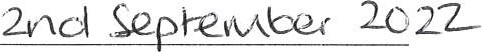 2nd September 2022